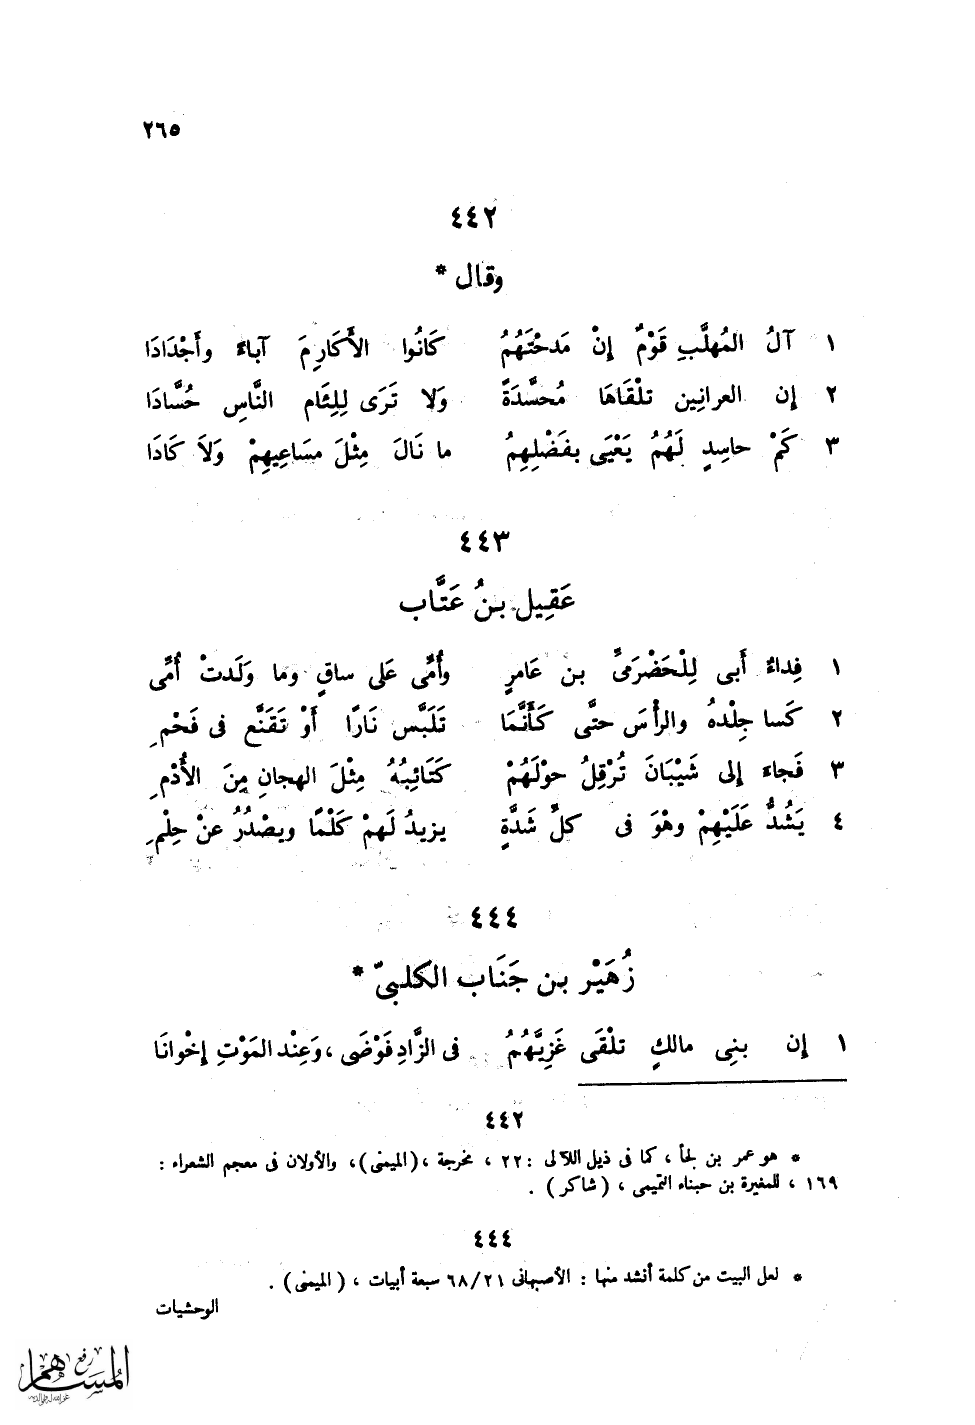 ٢٦٥
٤٤٢
وقال *
١ آلُ المُهلَّبِ قَوْمٌ إنْ مَدحْتَهُمُ كَانُوا الأَكَارِمَ آباءً وأَجْدَادَا
٢ إن العرانِين تلْقَاهَا مُحسَّدَةً وَلا تَرَى لِلِئَام النَّاسِ حُسَّادَا
٣ كَمْ حاسِدٍ لَهُمُ يَعْيَى بفَضْلِهِمُ ما نَالَ مِثْلَ مسَاعِيهِمْ وَلاَ كَادَا
٤٤٣
عَقِيل بنُ عَتَّاب
١ فِداءٌ أَبى لِلْحَضْرَمىِّ بن عَامرٍ وأُمِّى عَلى ساقٍ وما وَلَدتْ أُمِّى
٢ كَسا جِلْدهُ والرأْسَ حتَّى كَأَنَّمَا تَلَبَّس نَارًا أَوْ تقَنَّع فى فَحْمِ
٣ فَجاءَ إلى شَيْبَانَ تُرْقِلُ حوْلَهُمْ كَتَائِبُهُ مِثْلَ الهجانِ مِنَ الأُدْمِ
٤ يَشُدُّ عَلَيْهِمْ وهْوَ فى كلِّ شَدَّةٍ يزيدُ لَهمْ كَلْمًا ويصْدُرُ عنْ حِلْمِ
٤٤٤
زُهَيْر بن جَنَاب الكلبىّ *
١ إن بنِى مالكٍ تلْقَى غَزِيَّهُمُ فى الزَّادِ فَوْضَى ، وَعِنْد المَوْتِ إخْوانَا
٤٤٢
* هو عمر بن لجأ ، كما فى ذيل اللآلى : ٢٢ ، مخرجة ، (الميمنى) ، والأولان فى معجم الشعراء :
١٦٩ ، للمغيرة بن حبناء التميمى ، (شاكر) .
٤٤٤
* لعل البيت من كلمة أنشد منها : الأصبهانى ٦٨/٢١ سبعة أبيات ، (الميمنى) .
الوحشيات
المساهم
رفع